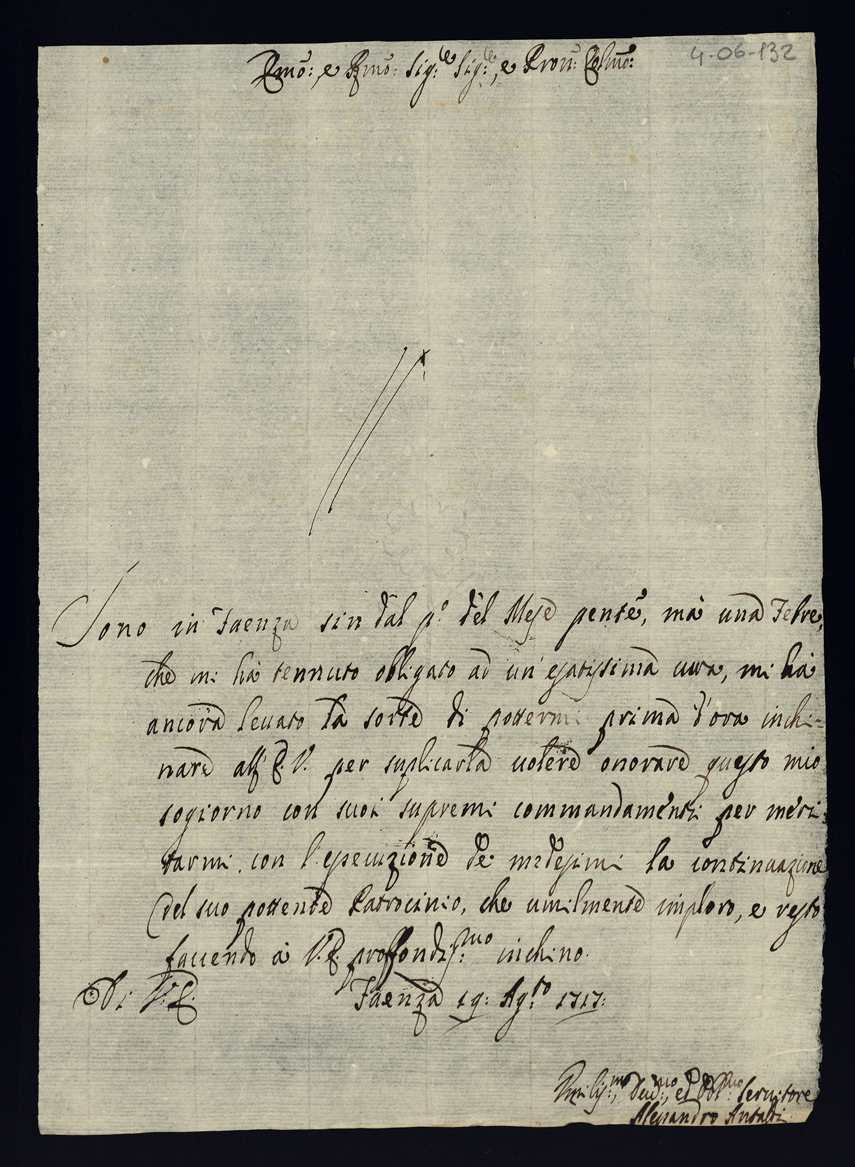 4-06-132
Emo: e Rmo: Sig:re Sig:re, e Pron: Colmo:
Sono in Faenza sin dal p.o del Mese pente, mà una Febre,
che mi hà tennuto obligato ad un' esatissima cura, mi hà
ancora levato la sorte di pottermi prima d'ora inchi-
nare all' E. V. per suplicarla volere onorare questo mio
sogiorno con suoi supremi commandamenti per meri-
tarmi con l'esecuzione de medesimi la continuazione
del suo pottente Patrocinio, che umilmente imploro, e resto
facendo à V. E. proffondis:mo inchino.
Di V. E. Faenza 19: Ag:to 1717:
Umilis:mo, Dev:mo, ed Obl:mo Servitore
Alessandro